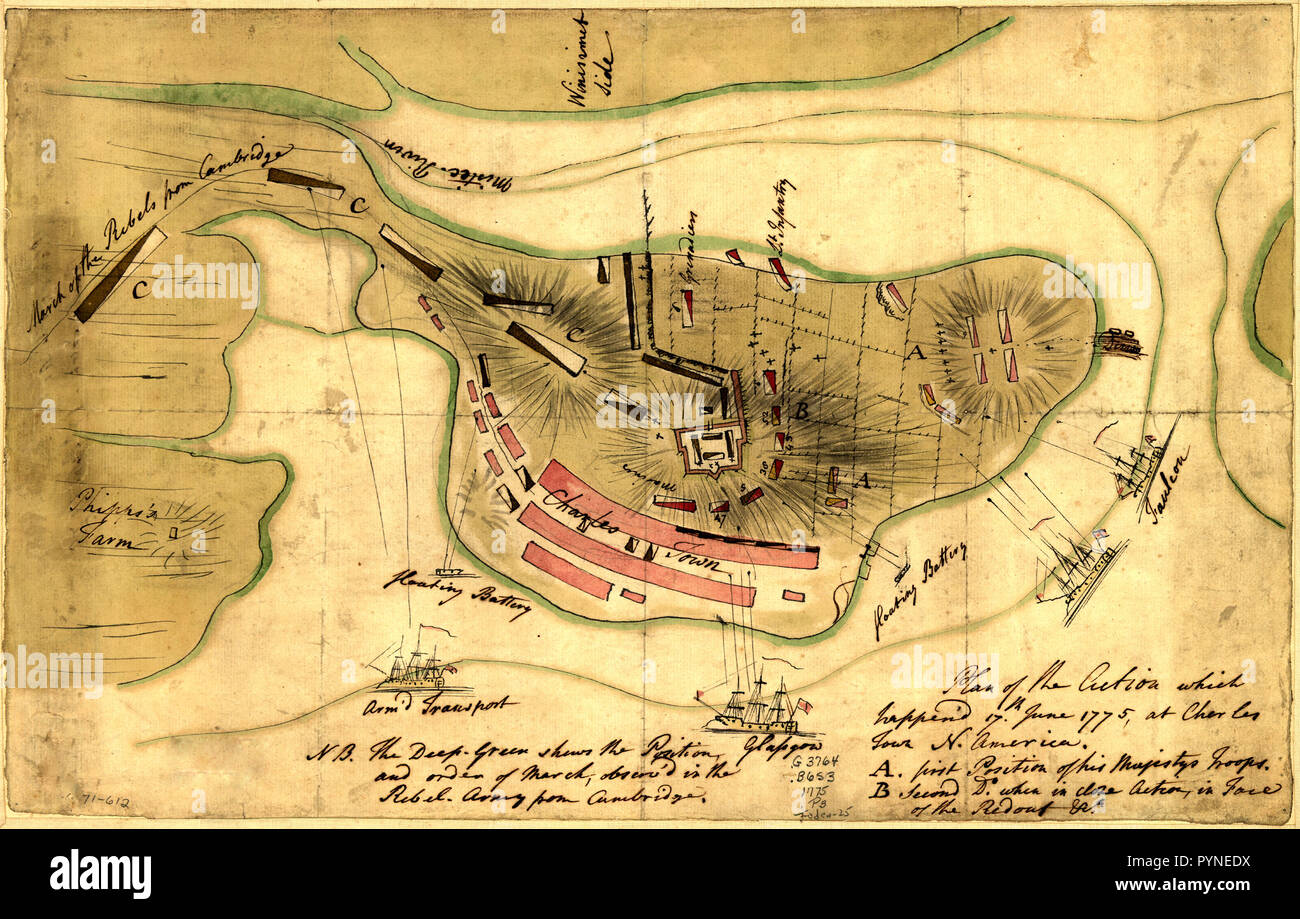 Winisimet
side
Mistic River
March of the Rebels from Cambridge
C
C
C
Grenadiers
Lt. Infantry
A
B
52
43
38
5
47
A
Charles Town
Phipps's
Farm
floating Battery
floating Battery
Faulcon
Arm'd Transport
Glasgow
N B. The Deep-Green shews the Position,
and order of March, observ'd in the
Rebel-Army from Cambridge.
Plan of the Action which
happen'd 17.th June 1775, at Charles
Town N. America.
A. first Position of his Majestys Troops.
B Second D.o when in close Action, in Face
of the Redout &c.
71-612
G3764
.B6S3
1775
.P3
alamy
Image ID: PYNEDX
www.alamy.com